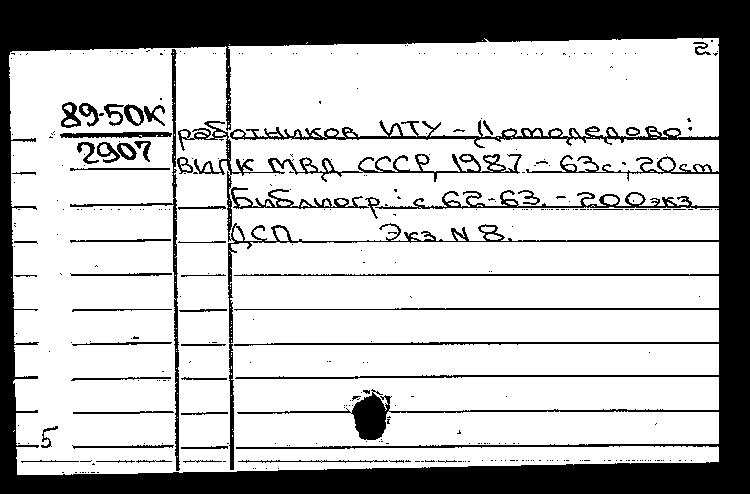 2.
89-50К
2907
работников ИТУ - Домодедово:
ВИПК МВД СССР, 1987. - 63с.; 20см.
Библиогр.: с. 62-63. - 200экз.
ДСП. Экз. N 8.
5